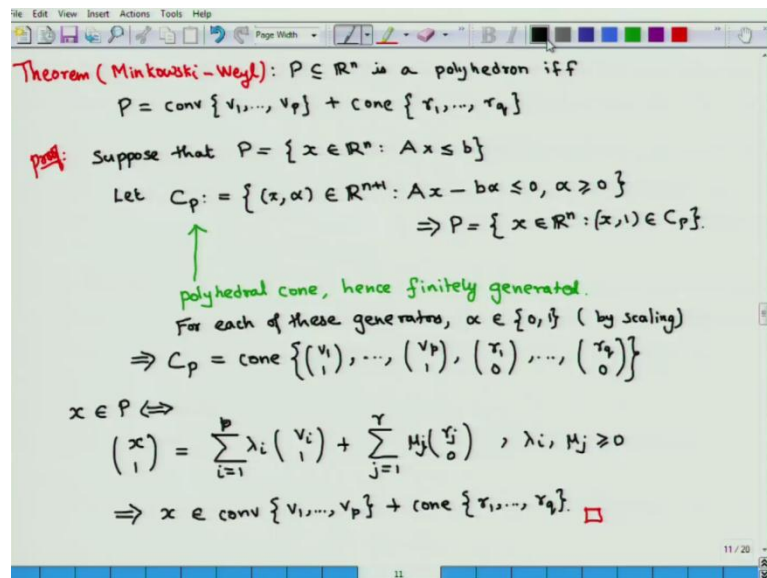 File Edit View Insert Actions Tools Help
Page Width
Theorem (Minkowski-Weyl): P ⊆ ℝⁿ is a polyhedron iff
P = conv {v₁,..., vₚ} + cone {r₁,..., r_q}
proof: Suppose that P = {x ∈ ℝⁿ : Ax ≤ b}
Let Cₚ := {(x, α) ∈ ℝⁿ⁺¹ : Ax - bα ≤ 0, α ≥ 0}
⇒ P = {x ∈ ℝⁿ : (x,1) ∈ Cₚ}.
polyhedral cone, hence finitely generated.
For each of these generators, α ∈ {0,1} (by scaling)
⇒ Cₚ = cone {(v₁ 1),..., (vₚ 1), (r₁ 0),..., (r_q 0)}
x ∈ P ⇔
(x 1) = ∑_{i=1}^{p} λᵢ (vᵢ 1) + ∑_{j=1}^{r} μⱼ (rⱼ 0) , λᵢ, μⱼ ≥ 0
⇒ x ∈ conv {v₁,..., vₚ} + cone {r₁,..., r_q}. □
11 / 20
11